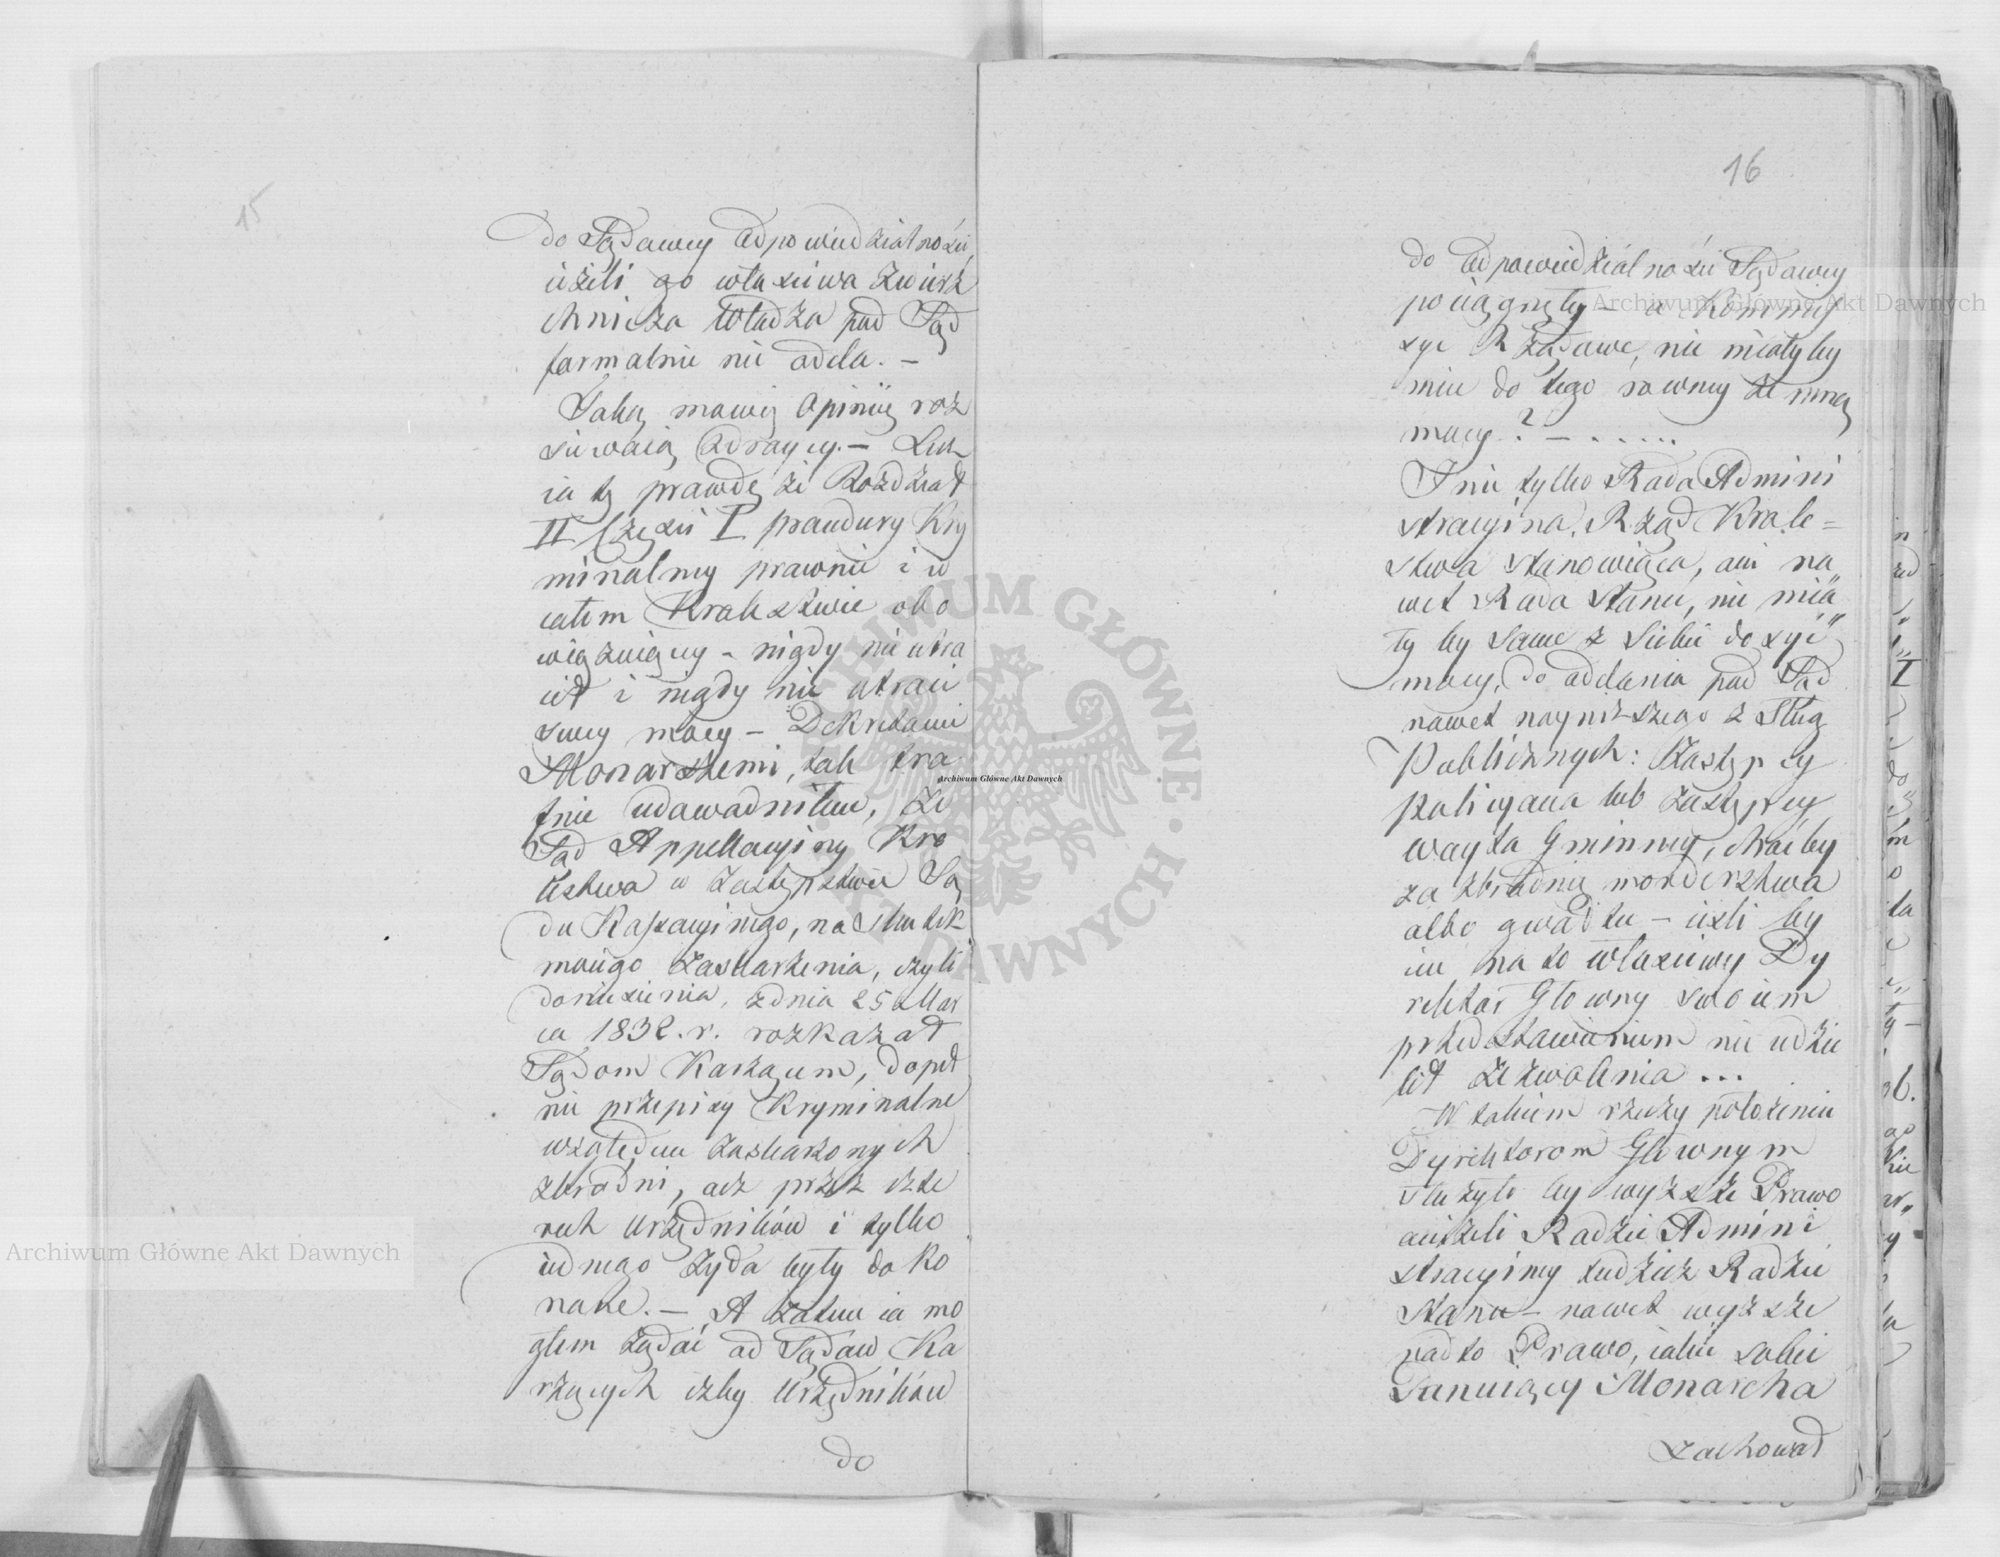 15
do Sądowey odpowiedzialności,
ieżeli go właściwa Zwierz
chnicza Władza pod Sąd
formalnie nie odda. —
Taką mowię Opinię roz
siewaią Zdraycy. — Lecz
ia tę prawdę że Rozdział
II Części I procedury Kry
minalney prawnie i w
całem Krolestwie obo
wiązuiący — nigdy nie utra
cił i nigdy nie utraci
swey mocy — Dekretami
Monarszemi, tak tra
fnie udowodniłem, że
Sąd Appellacyiny Kro
lestwa w Zastępstwie Są
du Kassacyinego, na skutek
moiego Zaskarżenia, czyli
doniesienia, z dnia 25 Mar
ca 1832. r. rozkazał
Sądom Karzącem, dopeł
nić przepisy Kryminalne
względem zaskarżonych
zbrodni, acz przez czte
rech Urzędników i tylko
iednego Żyda były doko
nane. — A zatem ia mo
głem żądać od Sądow Ka
rzących iżby Urzędników
do
16
do Odpowiedzialności Sądowey
pociągnęły — a Kommis
sye Rządowe, nie miałyby
mieć do tego rowney ze mną
mocy? — . . . . . .
I nie tylko Rada Admini
stracyina, Rząd Krole=
stwa stanowiąca, ani na
wet Rada Stanu, nie mia„
ły by same z siebie dosyć„
mocy, do oddania pod Sąd
nawet nayniższego z Sług
Publicznych: Zastępcy
policyana lub Zastępcy
woyta Gminney, choćby
za zbrodnię morderstwa
albo gwałtu — ieżli by
im na to właściwy Dy
rektor Głowny swoiem
przedstawieniem nie udzie
lił zezwolenia ...
W takiem rzeczy położeniu
Dyrektorom Głownym
służyło by wyższe Prawo
aniżeli Radzie Admini
stracyiney tudzież Radzie
Stanu — nawet wyższe
nad to Prawo, iakie sobie
Panuiący Monarcha
zachował
Archiwum Główne Akt Dawnych
Archiwum Główne Akt Dawnych
Archiwum Główne Akt Dawnych
ARCHIWUM GŁÓWNE AKT DAWNYCH